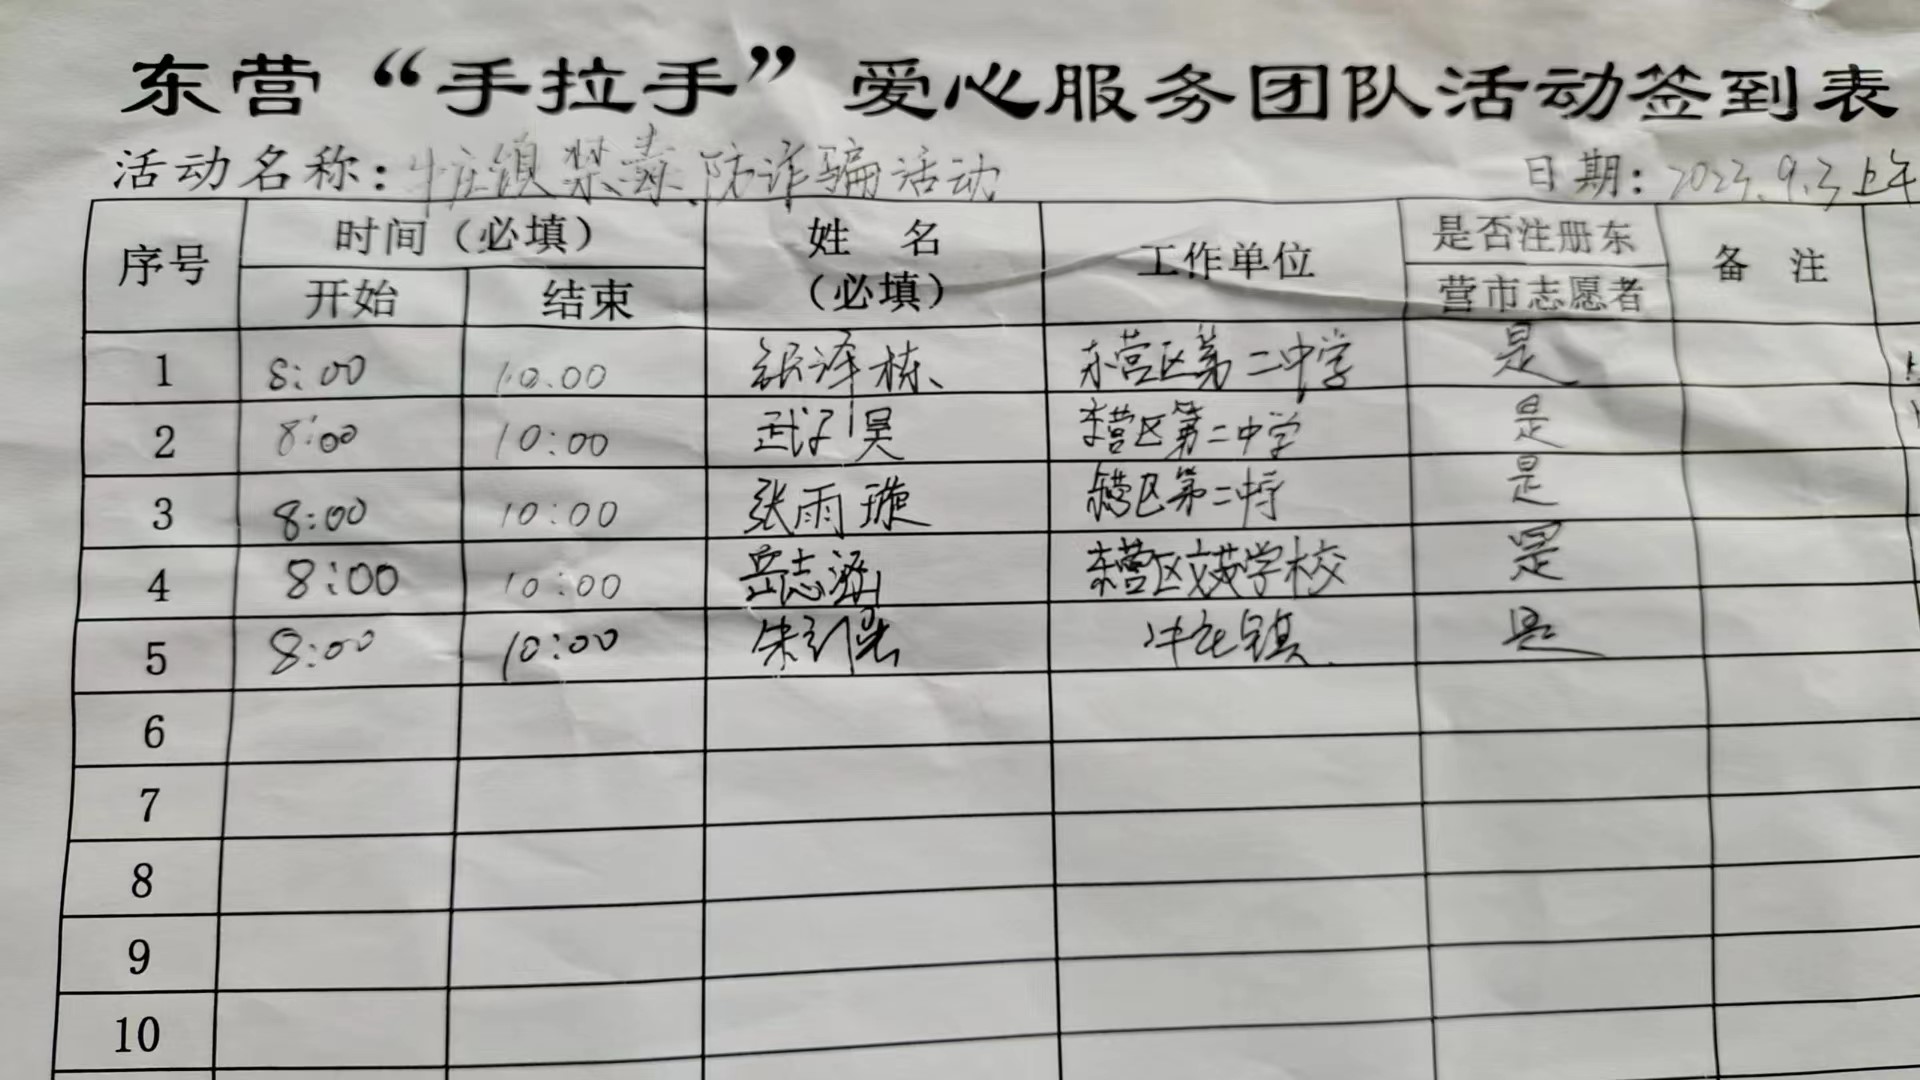 东营“手拉手”爱心服务团队活动签到表
活动名称：牛庄镇禁毒、防诈骗活动 日期：2023.9.3上午
序号 时间（必填） 姓 名（必填） 工作单位 是否注册东营市志愿者 备 注
开始 结束
1 8:00 10.00 张泽栋 东营区第二中学 是
2 8:00 10:00 武子昊 东营区第二中学 是
3 8:00 10:00 张雨璇 东营区第二中学 是
4 8:00 10:00 岳志涵 东营区文英学校 是
5 8:00 10:00 朱 牛庄镇 是
6
7
8
9
10